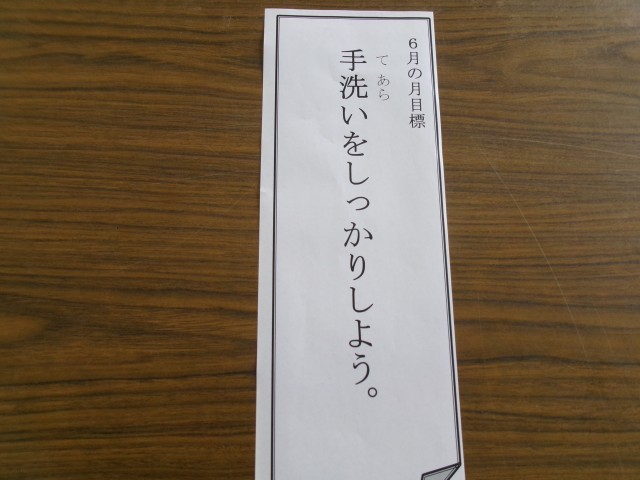 ６月の月目標
て あら
手洗いをしっかりしよう。